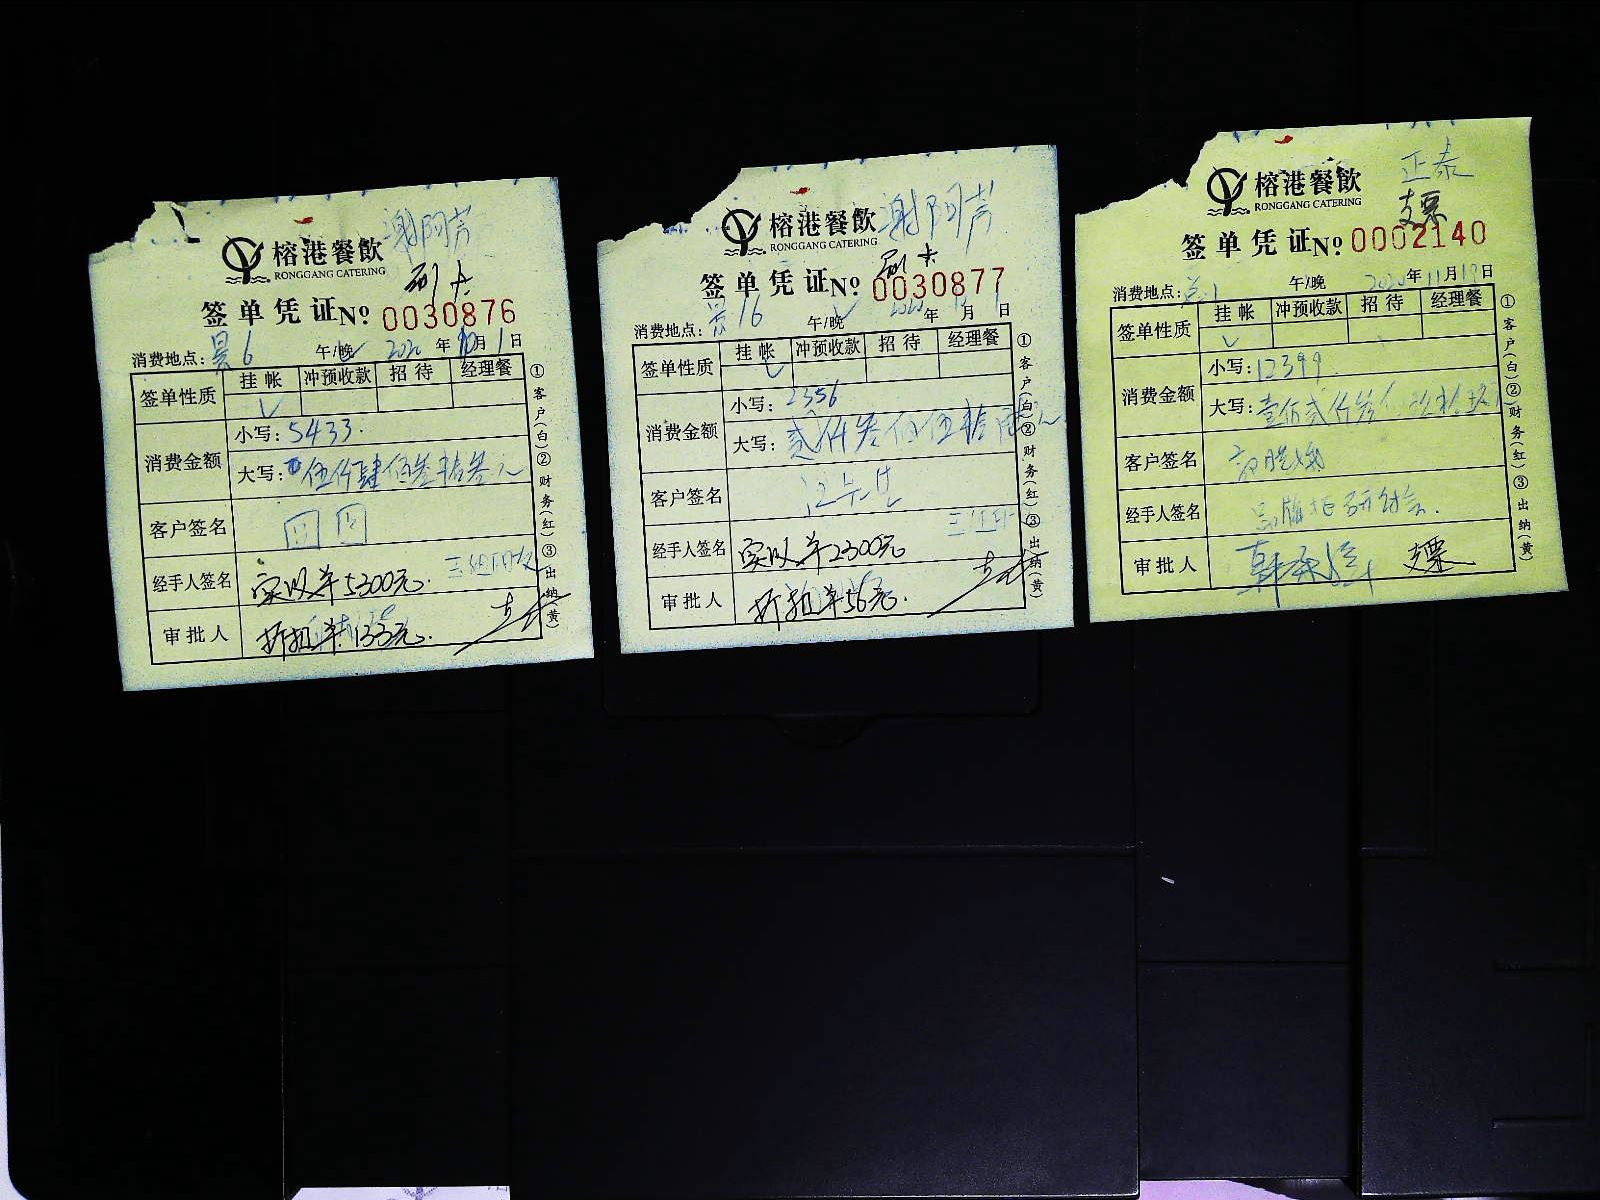 谢阿芳
榕港餐飲
RONGGANG CATERING
刷卡
签单凭证 No 0030876
消费地点：景6 午/晚 2020年10月1日
签单性质 挂帐 冲预收款 招待 经理餐
消费金额 小写：5433.
大写：伍仟肆佰叁拾叁元
客户签名
经手人签名 实收单5300元.
审批人 折扣单133元.
①客户(白)②财务(红)③出纳(黄)
谢阿芳
榕港餐飲
RONGGANG CATERING
刷卡
签单凭证 No 0030877
消费地点：景16 午/晚 2020年 月1日
签单性质 挂帐 冲预收款 招待 经理餐
消费金额 小写：2356
大写：贰仟叁佰伍拾陆元
客户签名
经手人签名 实收单2300元
审批人 折扣单56元.
①客户(白)②财务(红)③出纳(黄)
正泰
榕港餐飲
RONGGANG CATERING
支票
签单凭证 No 0002140
消费地点： 午/晚 2020年11月17日
签单性质 挂帐 冲预收款 招待 经理餐
消费金额 小写：12399.
大写：
客户签名
经手人签名
审批人 支票
①客户(白)②财务(红)③出纳(黄)